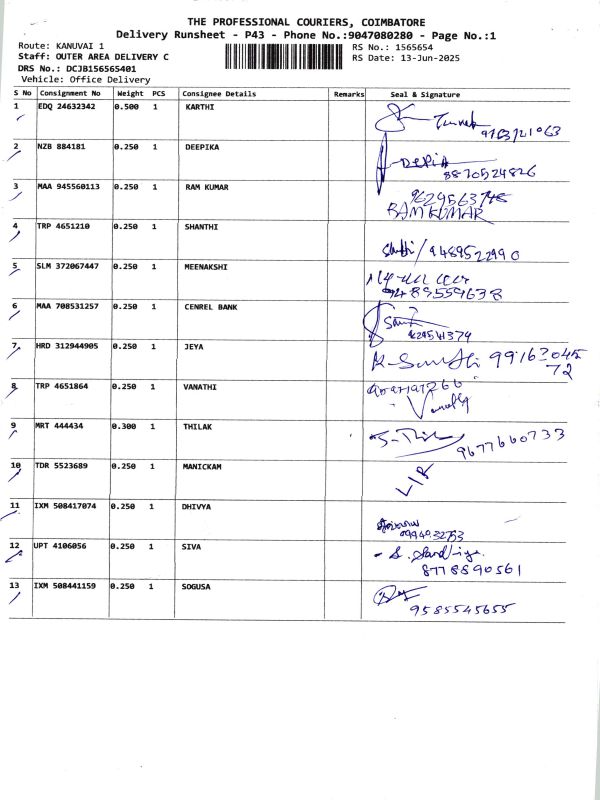 THE PROFESSIONAL COURIERS, COIMBATORE
Delivery Runsheet - P43 - Phone No.:9047080280 - Page No.:1
Route: KANUVAI 1
RS No.: 1565654
Staff: OUTER AREA DELIVERY C
RS Date: 13-Jun-2025
DRS No.: DCJB156565401
Vehicle: Office Delivery
S No Consignment No Weight PCS Consignee Details Remarks Seal & Signature
1 EDQ 24632342 0.500 1 KARTHI
2 NZB 884181 0.250 1 DEEPIKA
8870524826
3 MAA 945560113 0.250 1 RAM KUMAR
RAM KUMAR
4 TRP 4651210 0.250 1 SHANTHI
9489522990
5 SLM 372067447 0.250 1 MEENAKSHI
9489559638
6 MAA 708531257 0.250 1 CENREL BANK
7 HRD 312944905 0.250 1 JEYA
9916204572
8 TRP 4651864 0.250 1 VANATHI
9 MRT 444434 0.300 1 THILAK
9677660733
10 TDR 5523689 0.250 1 MANICKAM
11 IXM 508417074 0.250 1 DHIVYA
12 UPT 4106056 0.250 1 SIVA
8778890561
13 IXM 508441159 0.250 1 SOGUSA
9585545655